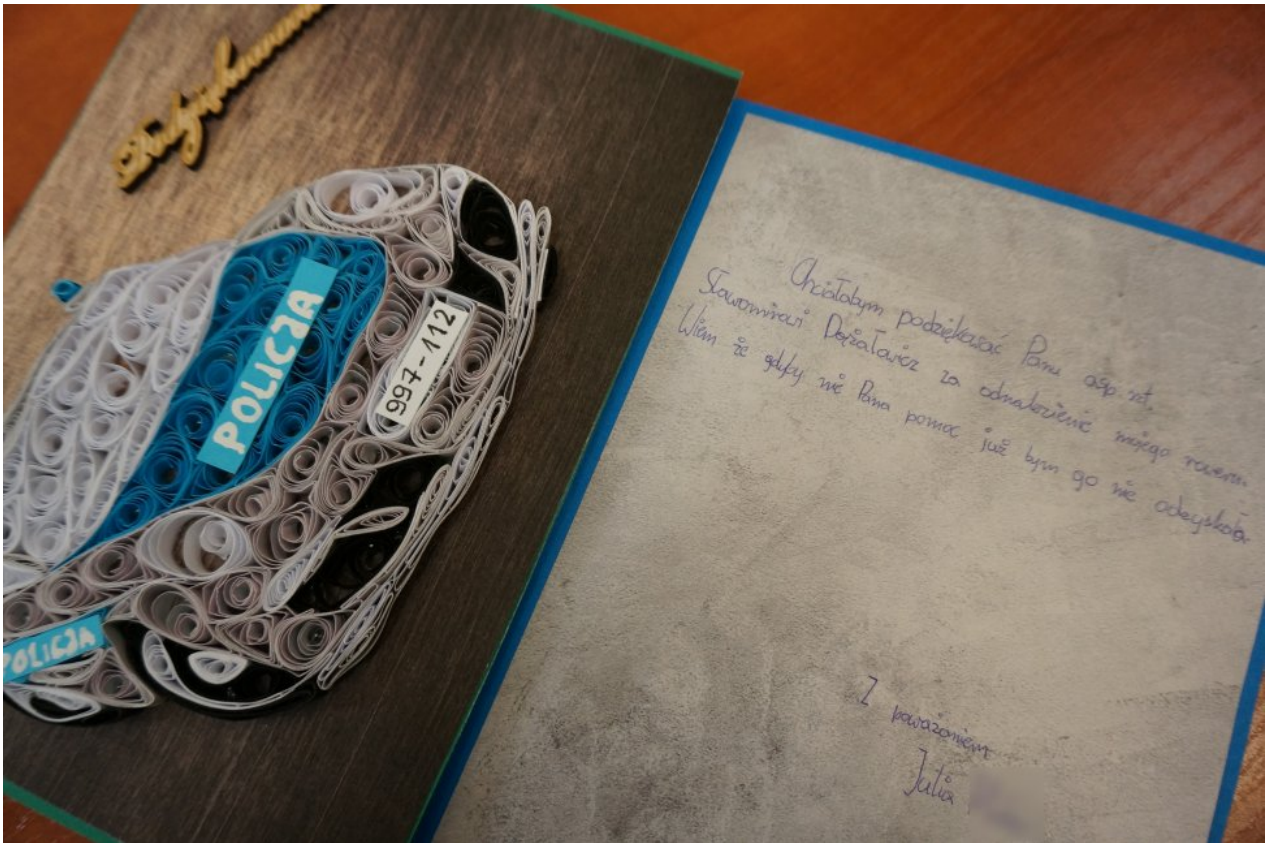 Podziękowani
POLICJA
997-112
POLICJA
Chciałabym podziękować Panu asp. szt.
Sławomirowi za odnalezienie mojego roweru.
Wiem że gdyby nie Pana pomoc już bym go nie odzyskała.
Z poważaniem
Julia